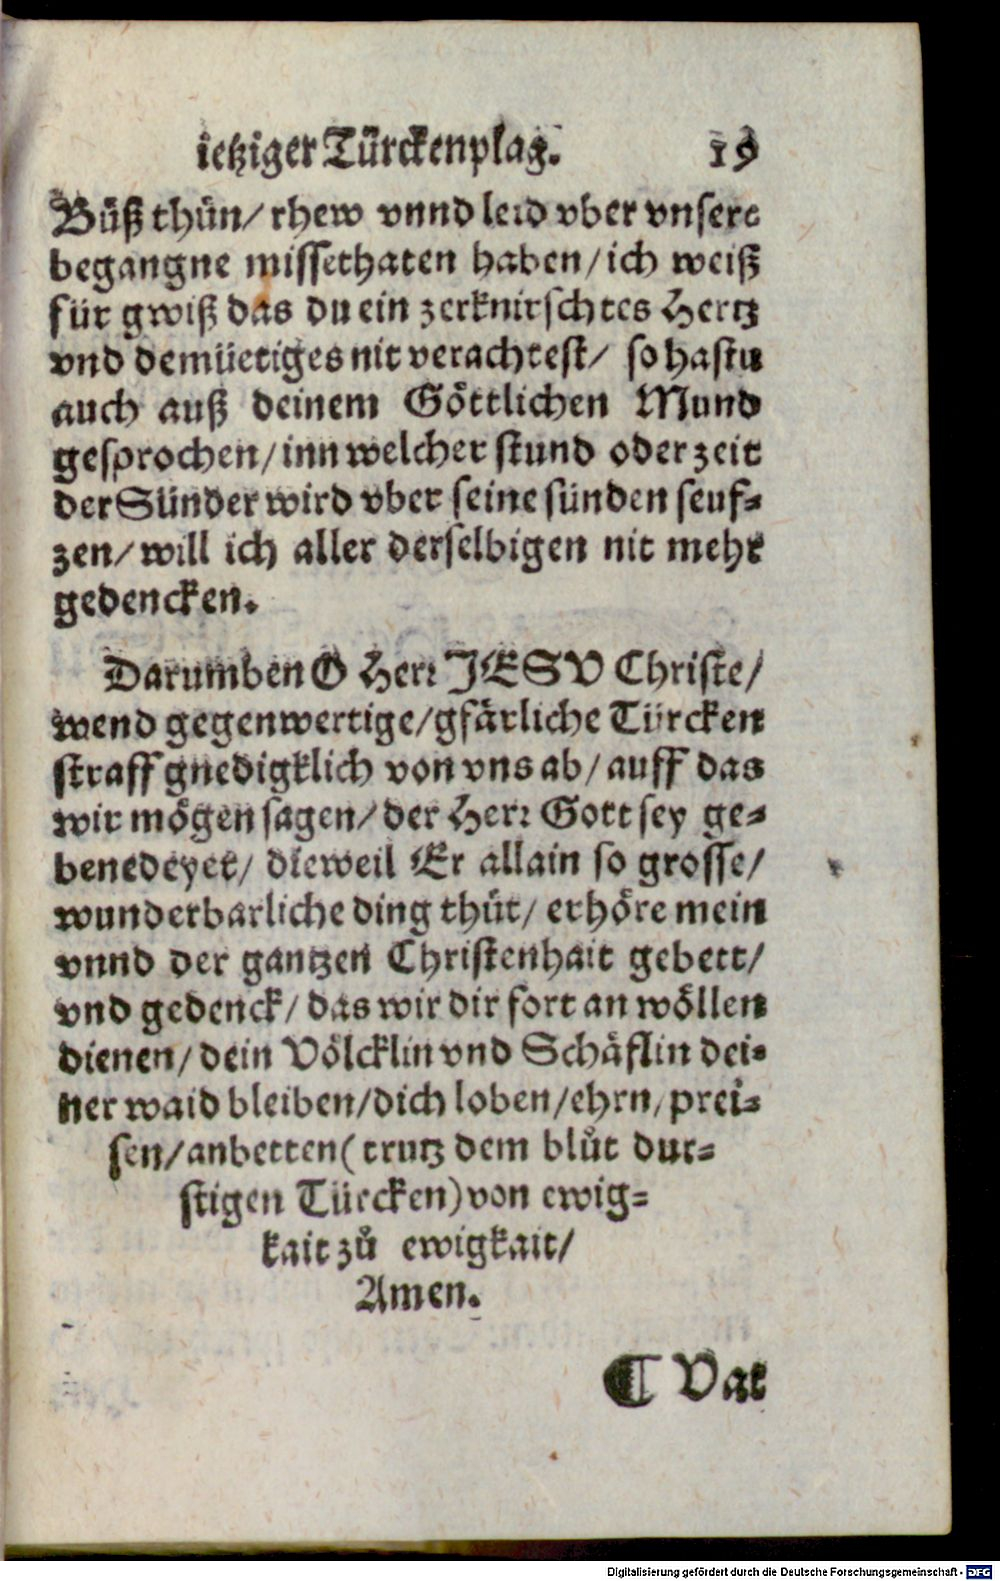 ietziger Türckenplag. 19
Bůß thůn/ rhew vnnd leid vber vnsere
begangne missethaten haben/ich weiß
für gwiß das du ein zerknirschtes Hertz
vnd demüetiges nit verachtest/ so hastu
auch auß deinem Göttlichen Mund
gesprochen/inn welcher stund oder zeit
der Sünder wird vber seine sünden seuf-
zen/will ich aller derselbigen nit mehr
gedencken.
Darumben O Herr JESV Christe/
wend gegenwertige/gfärliche Türcken
straff gnedigklich von vns ab/auff das
wir mögen sagen/der Herr Gott sey ge-
benedeyet/ dieweil Er allain so grosse/
wunderbarliche ding thůt/ erhöre mein
vnnd der gantzen Christenhait gebett/
vnd gedenck/das wir dir fort an wöllen
dienen/dein Völcklin vnd Schäflin dei-
ner waid bleiben/dich loben/ehrn/prei-
sen/anbetten(trutz dem blůt dur-
stigen Türcken)von ewig-
kait zů ewigkait/
Amen.
¶ Vat
Digitalisierung gefördert durch die Deutsche Forschungsgemeinschaft - DFG